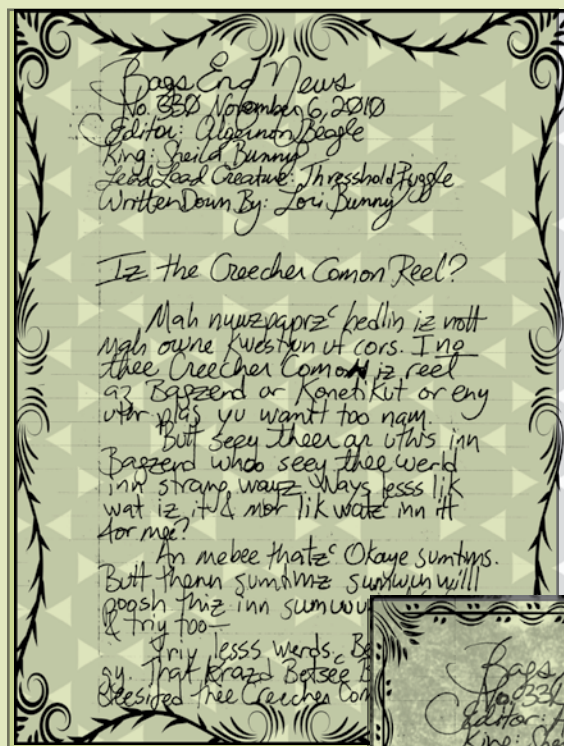 Bags End News
No. 330 November 6, 2010
Editor: Algernon Beagle
King: Sheila Bunny
Lead Lead Creature: Thresshold Puggle
Written Down By: Lori Bunny
Iz the Creecher Comon Reel?
Mah nuwzpaprz' hedlin iz nott
mah owne kwestyun uf cors. I no
thee Creecher Comon iz reel
az Bagzend or Konetikut or eny
uthr plas yu wantt too nam.
Butt seey theer ar uthis inn
Bagzend whoo seey thee werld
inn strang wayz. Ways lesss lik
wat iz it & mor lik watz' inn itt
for mee?
An mebee thatz' Okaye sumtms.
Butt thenn sumtmz sumwun will
poosh thiz inn
& triy too—
Triy lesss werds.
sy. That krazd Betsee B
Deesided thee Creecher Com
Bags
No. 33
Editor:
King: